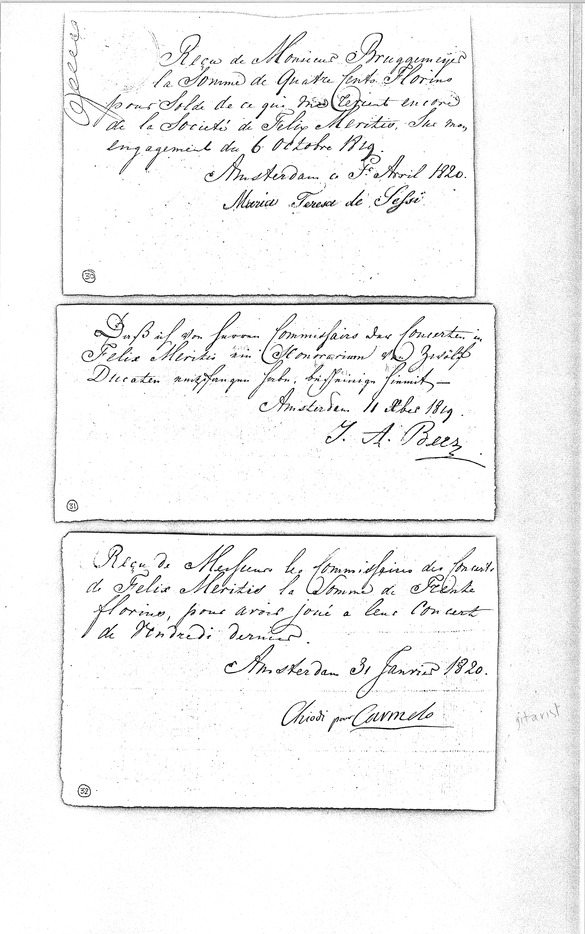 Reçu de Monsieur Bruggemeijer
la Somme de Quatre Cents Florins
pour Solde de ce que me revient encore
de la Societé de Felix Meritis, Sur mon
engagement du 6 Octobre 1819.
Amsterdam ce Avril 1820.
Maria Teresa de Sessi
30
Daß ich von Herren Commissairs der Concerten in
Felix Meritis ein Honorarium von Zwölf
Ducaten empfangen habe, bescheinige hiemit —
Amsterdam 11 Xber 1819.
J. A. Beer
31
Reçu de Messieurs les Commissaires des Concerts
de Felix Meritis la Somme de Trente
florins, pour avoir joué a leur Concert
de Vendredi dernier.
Amsterdam 31 Janvier 1820.
Chiodi pour Carmelo
gitarist
32